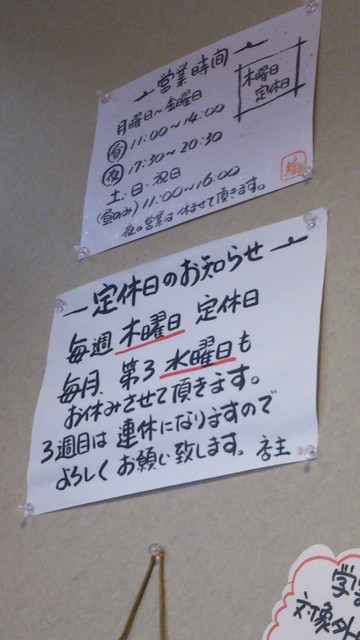 営業時間
木曜日
定休日
月曜日～金曜日
昼 11:00～14:00
夜 17:30～20:30
土・日・祝日
(昼のみ) 11:00～16:00
夜の営業は休ませて頂きます。
定休日のお知らせ
毎週 木曜日 定休日
毎月 第3 水曜日も
お休みさせて頂きます。
3週目は 連休になりますので
よろしく お願い致します。 店主
対象外